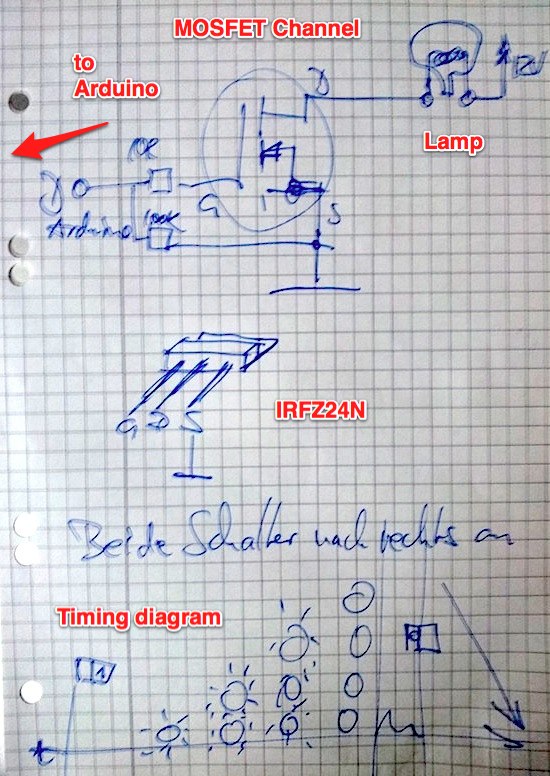 MOSFET Channel
to
Arduino
D
12V
Lamp
10k
D
G
Arduino
100k
S
IRFZ24N
G D S
Beide Schalter nach rechts an
Timing diagram
1
0